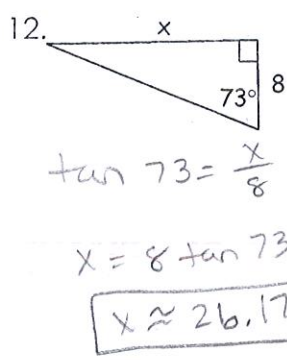 12.
x
8
73°
tan 73 = x/8
x = 8 tan 73
x ≈ 26.17